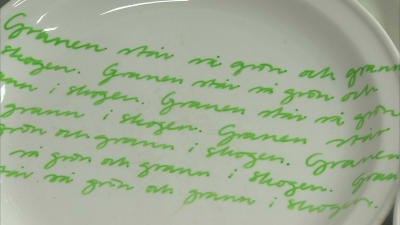 Granen står så grön och grann
skogen. Granen står så grön och
ann i skogen. Granen står så grön
grann i skogen. Granen står
grön och grann i skogen. Granen
så grön och grann i skogen. Gran
står så grön och grann i skogen.